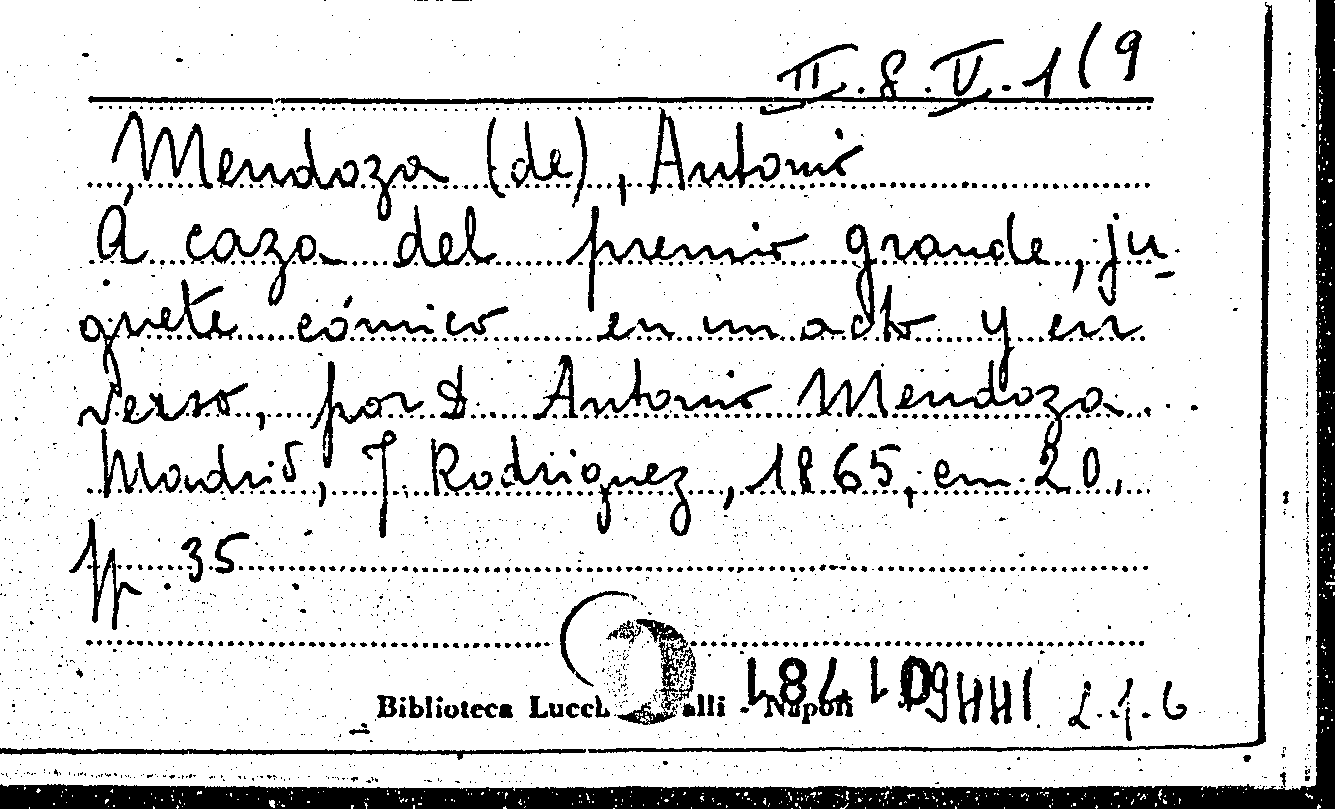 II.8.V.1(9
Mendoza (de), Antonio
Á caza del premio grande, ju-
guete cómico en un acto y en
verso, por D. Antonio Mendoza.
Madrid, J. Rodriguez, 1865, cm. 20,
pp. 35
Biblioteca Lucch alli - Napoli